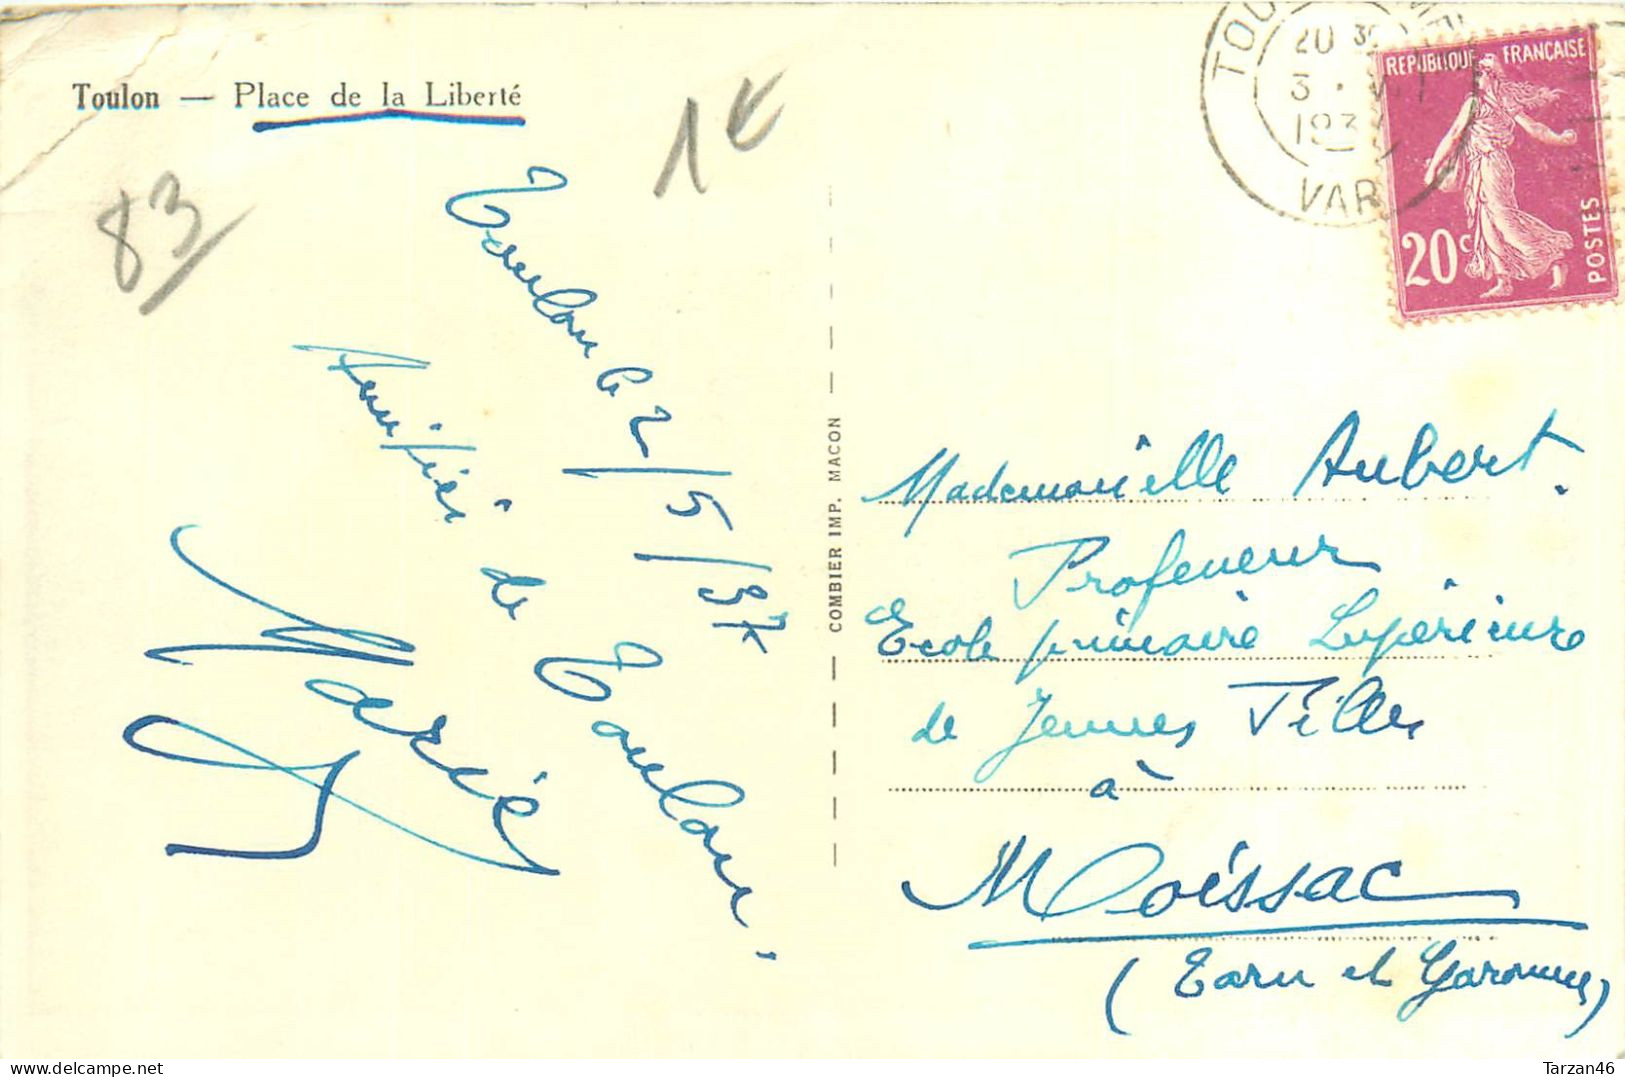 Toulon — Place de la Liberté
83
1€
Toulon le 2/5/37
Amitiés de Toulon.
COMBIER IMP. MACON
20 30
3
193
VAR
REPUBLIQUE FRANÇAISE
20c
POSTES
Mademoiselle Aubert.
Professeur
Ecole primaire Supérieure
de Jeunes Filles
à
Moissac
(Tarn et Garonne)
Tarzan46